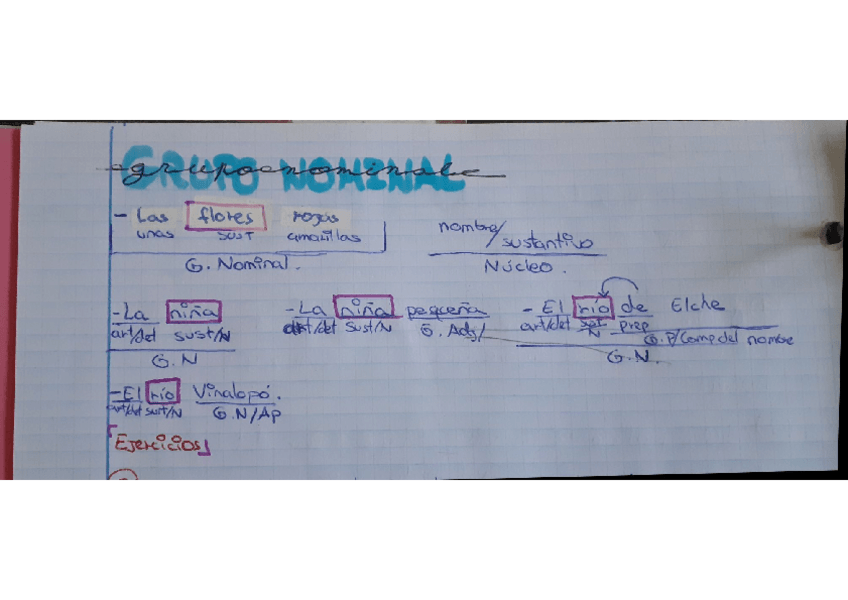 GRUPO NOMINAL
grupo nominal
- Las flores rojas
unas SUST amarillas
G. Nominal.
nombre/sustantivo
Núcleo.
-La niña
art/det sust/N
G.N
-La niña pequeña
art/det sust/N G. Adj/
- El río de Elche
art/det sust N prep
G.P/Comp del nombre
G.N.
-El río Vinalopó.
art/det sust/N G.N/Ap
Ejercicios